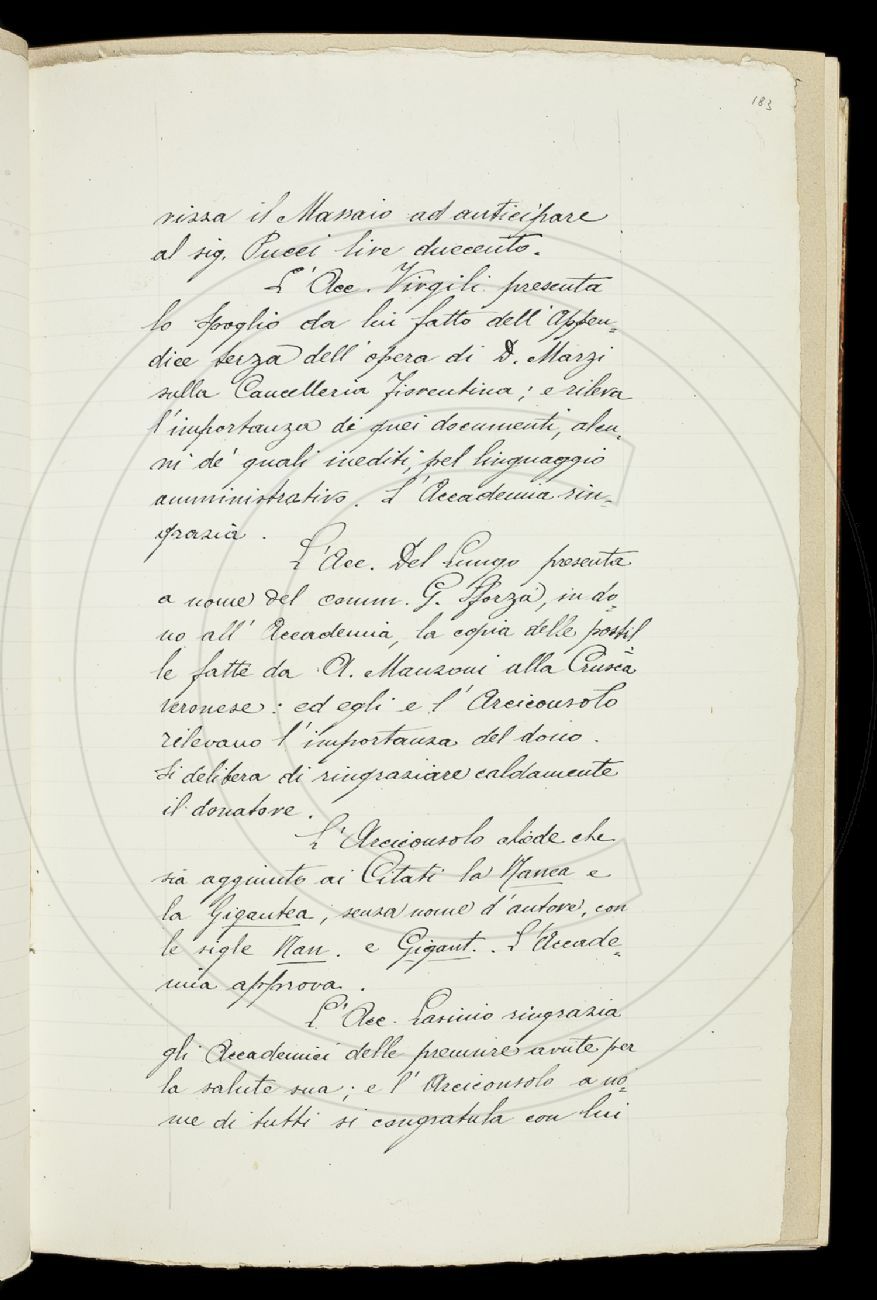 183
rizza il Massaio ad anticipare
al sig. Pucci lire duecento.
L'Acc. Virgili presenta
lo spoglio da lui fatto dell'Appen-
dice terza dell'opera di D. Marzi
sulla Cancelleria Fiorentina; e rileva
l'importanza di quei documenti, alcu-
ni de' quali inediti, pel linguaggio
amministrativo. L'Accademia rin-
grazia.
L'Acc. Del Lungo presenta
a nome del comm. G. Sforza, in do-
no all'Accademia, la copia delle postil
le fatte da A. Manzoni alla Crusca
veronese: ed egli e l'Arciconsolo
rilevano l'importanza del dono.
Si delibera di ringraziare caldamente
il donatore.
L'Arciconsolo chiede che
sia aggiunto ai Citati la Nanea e
la Gigantea, senza nome d'autore, con
le sigle Nan. e Gigant.. L'Accade-
mia approva.
L'Acc. Lasinio ringrazia
gli Accademici delle premure avute per
la salute sua; e l'Arciconsolo a no-
me di tutti si congratula con lui